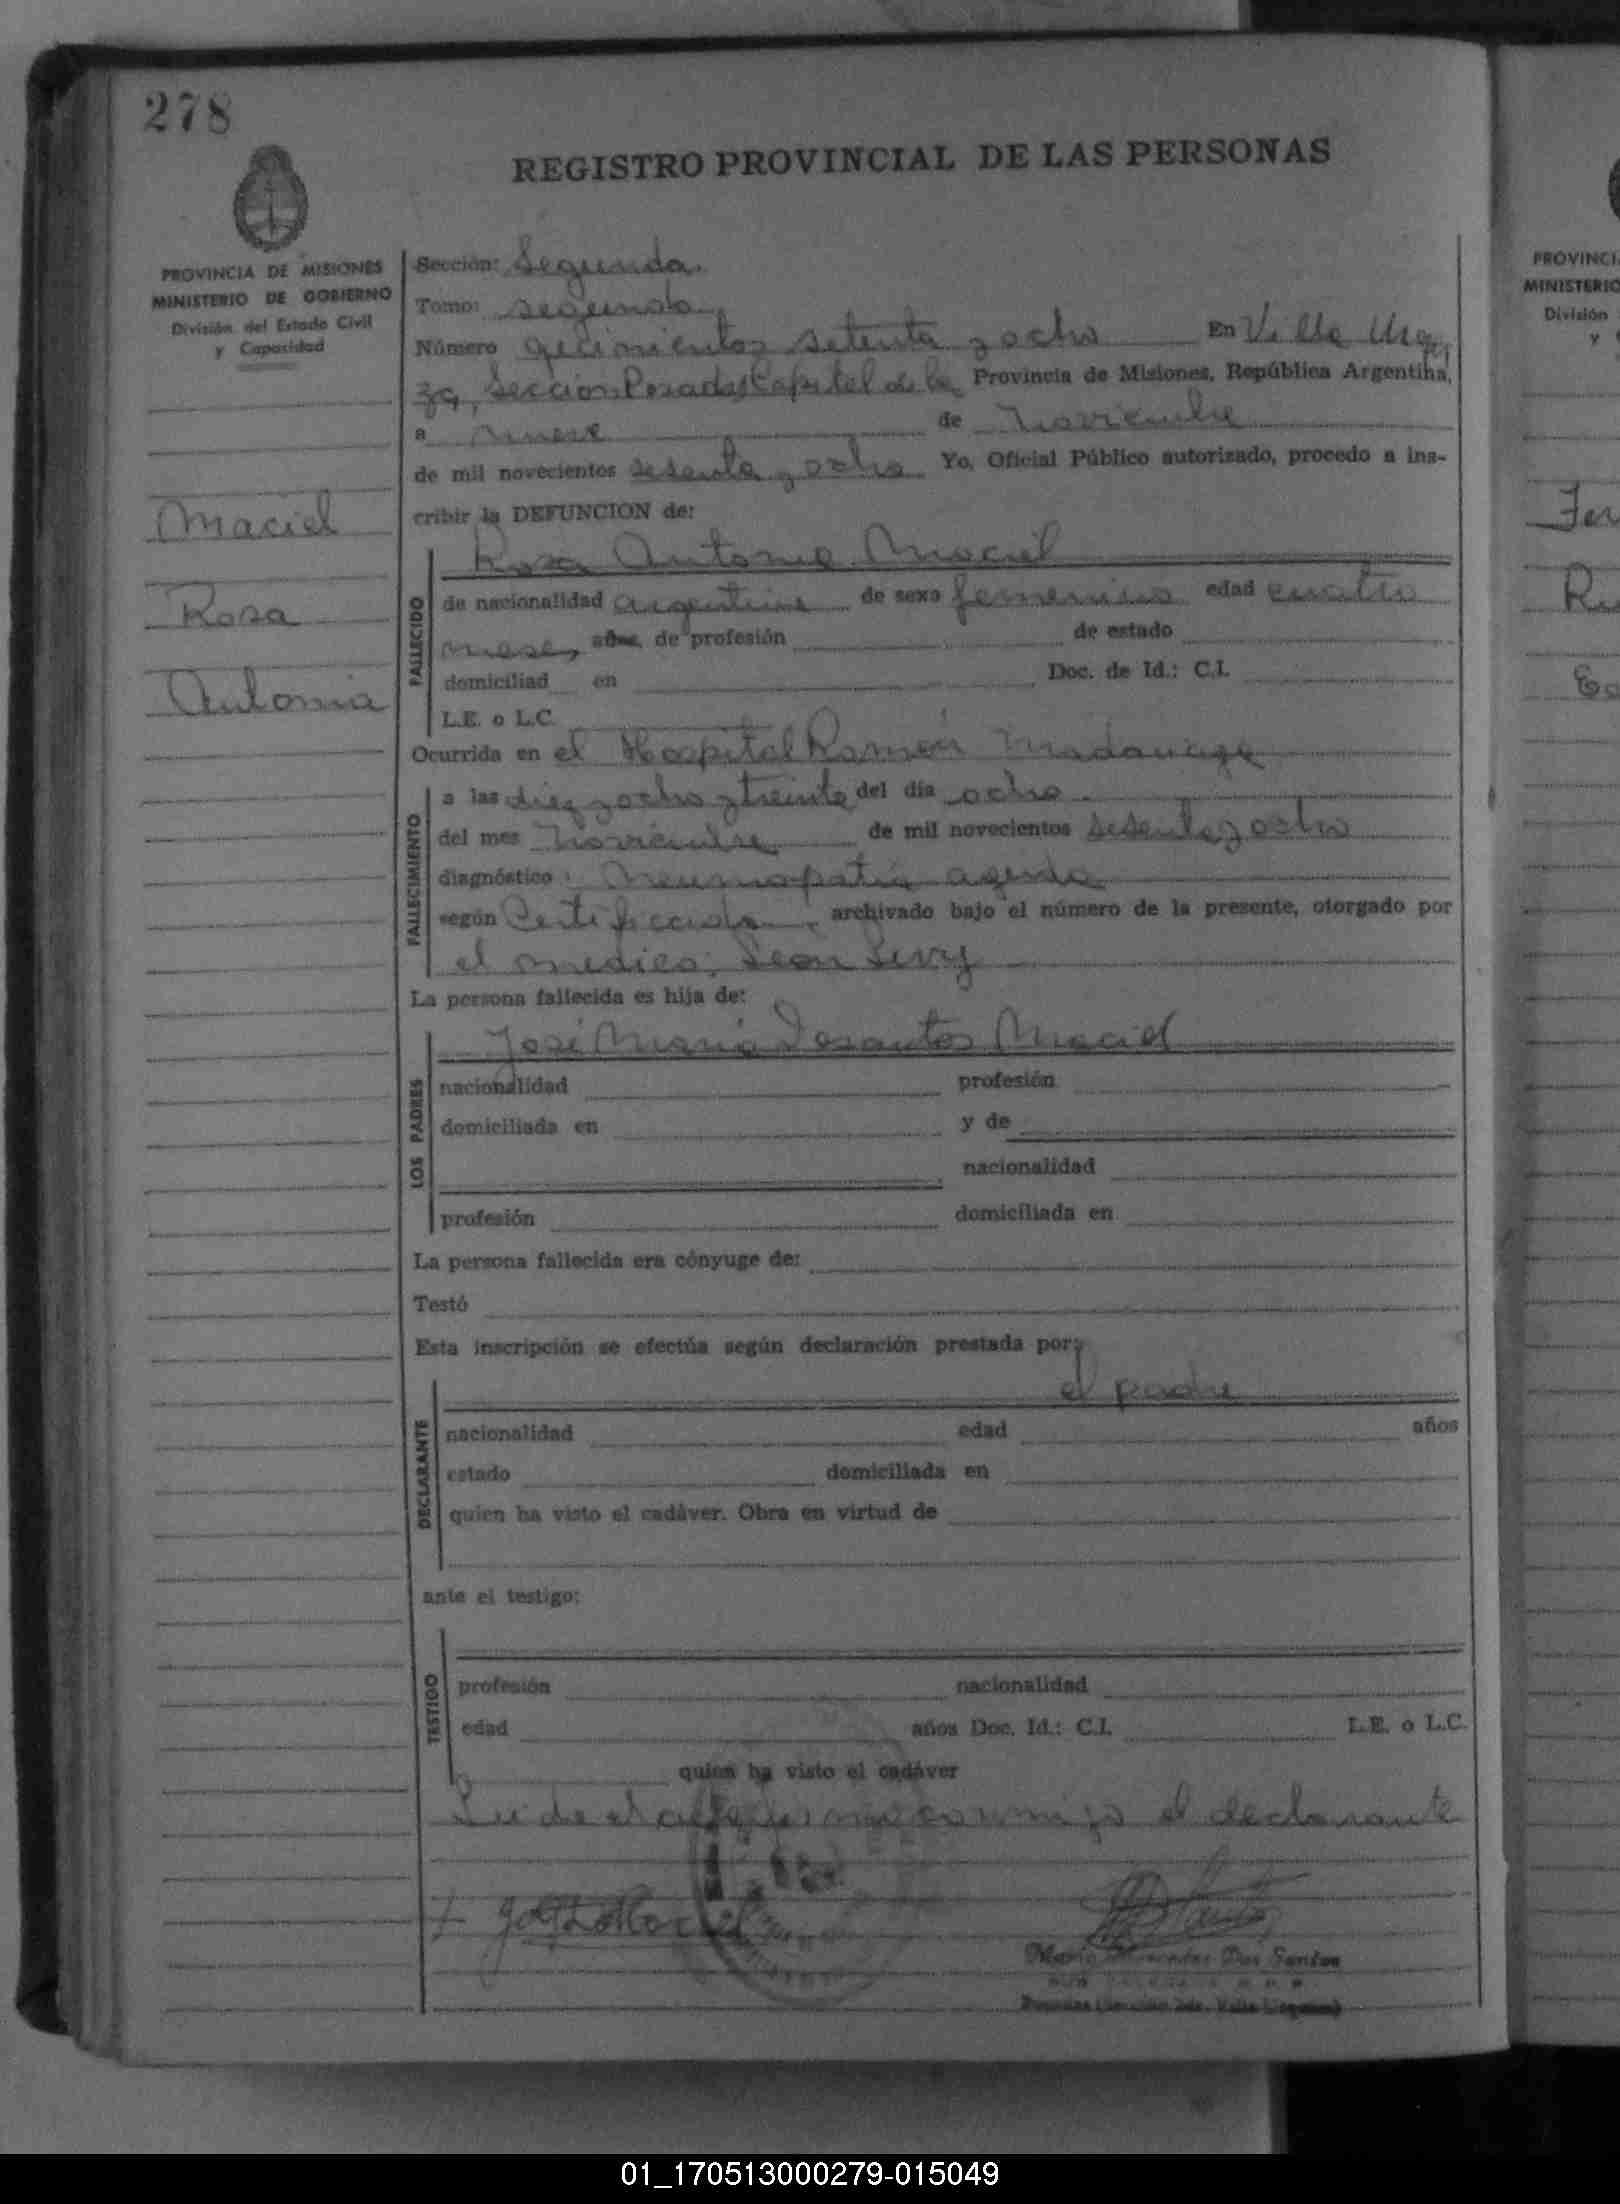 278
REGISTRO PROVINCIAL DE LAS PERSONAS
PROVINCIA DE MISIONES
MINISTERIO DE GOBIERNO
División del Estado Civil
y Capacidad
Maciel
Rosa
Antonia
Sección: Segunda.
Tomo: segundo
Número setenta y ocho En Villa Urqui
za, Sección Posadas Capital de la Provincia de Misiones, República Argentina,
a nueve de noviembre
de mil novecientos sesenta y ocho Yo, Oficial Público autorizado, procedo a ins-
cribir la DEFUNCION de:
FALLECIDO
Rosa Antonia Maciel
de nacionalidad argentina de sexo femenino edad cuatro
meses, años, de profesión de estado
domiciliad en Doc. de Id.: C.I.
L.E. o L.C.
Ocurrida en el Hospital Ramón Madariaga
FALLECIMIENTO
a las diez y ocho y treinta del día ocho.
del mes noviembre de mil novecientos sesenta y ocho
diagnóstico: Neumopatia aguda
según Certificado, archivado bajo el número de la presente, otorgado por
el medico: León Levy
La persona fallecida es hija de:
LOS PADRES
José Maria Desantos Maciel
nacionalidad profesión
domiciliada en y de
nacionalidad
profesión domiciliada en
La persona fallecida era cónyuge de:
Testó
Esta inscripción se efectúa según declaración prestada por:
DECLARANTE
el padre
nacionalidad edad años
estado domiciliada en
quien ha visto el cadáver. Obra en virtud de
ante el testigo:
TESTIGO
profesión nacionalidad
edad años Doc. Id.: C.I. L.E. o L.C.
quien ha visto el cadáver
el acta firma conmigo el declarante
Dos Santos
PROVINCI
MINISTERIO
División
y
01_170513000279-015049